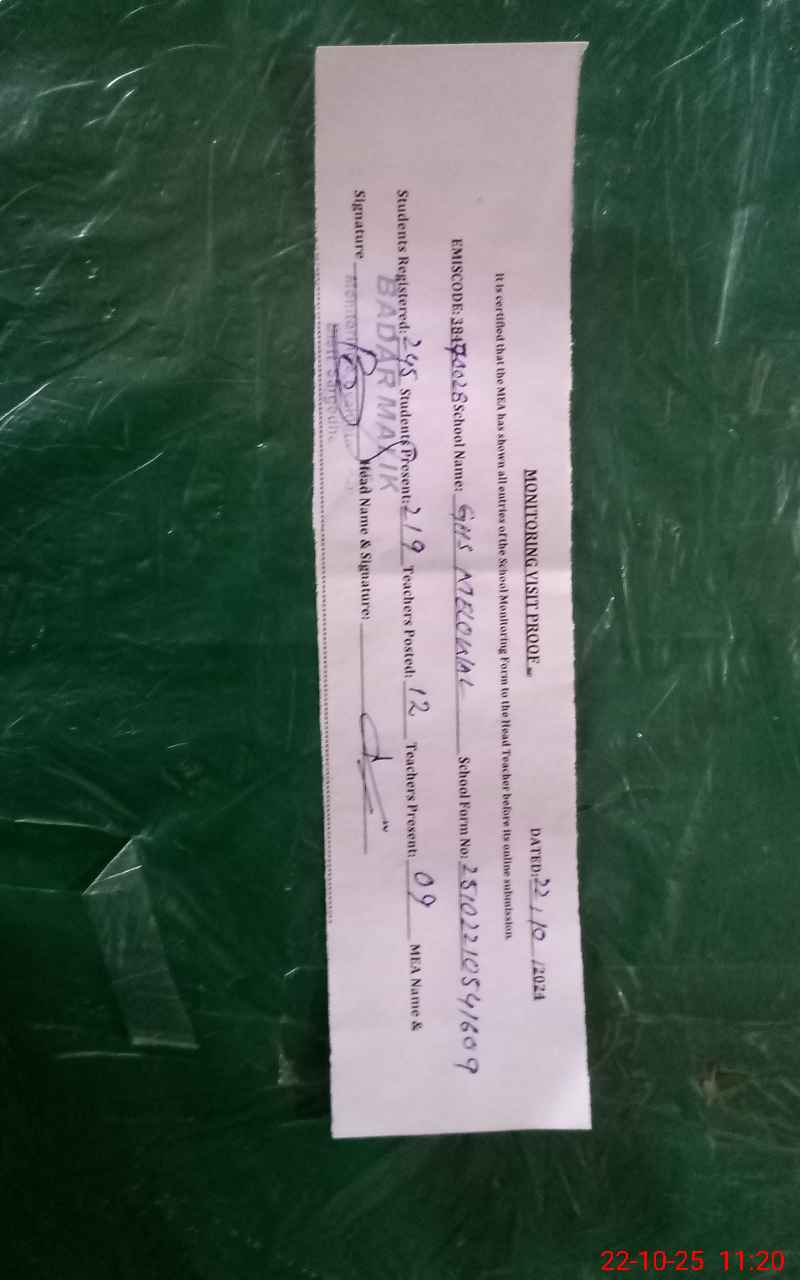 MONITORING VISIT PROOF
DATED: 22/10/2024
It is certified that the MEA has shown all entries of the School Monitoring Form to the Head Teacher before its online submission.
EMISCODE: 38470028 School Name: GHS MELOWAL School Form No: 2510221054 1609
Students Registered: 245 Students Present: 219 Teachers Posted: 12 Teachers Present: 09 MEA Name &
BADAR MALIK
Signature Head Name & Signature:
Monitor
Sargodha
22-10-25 11:20